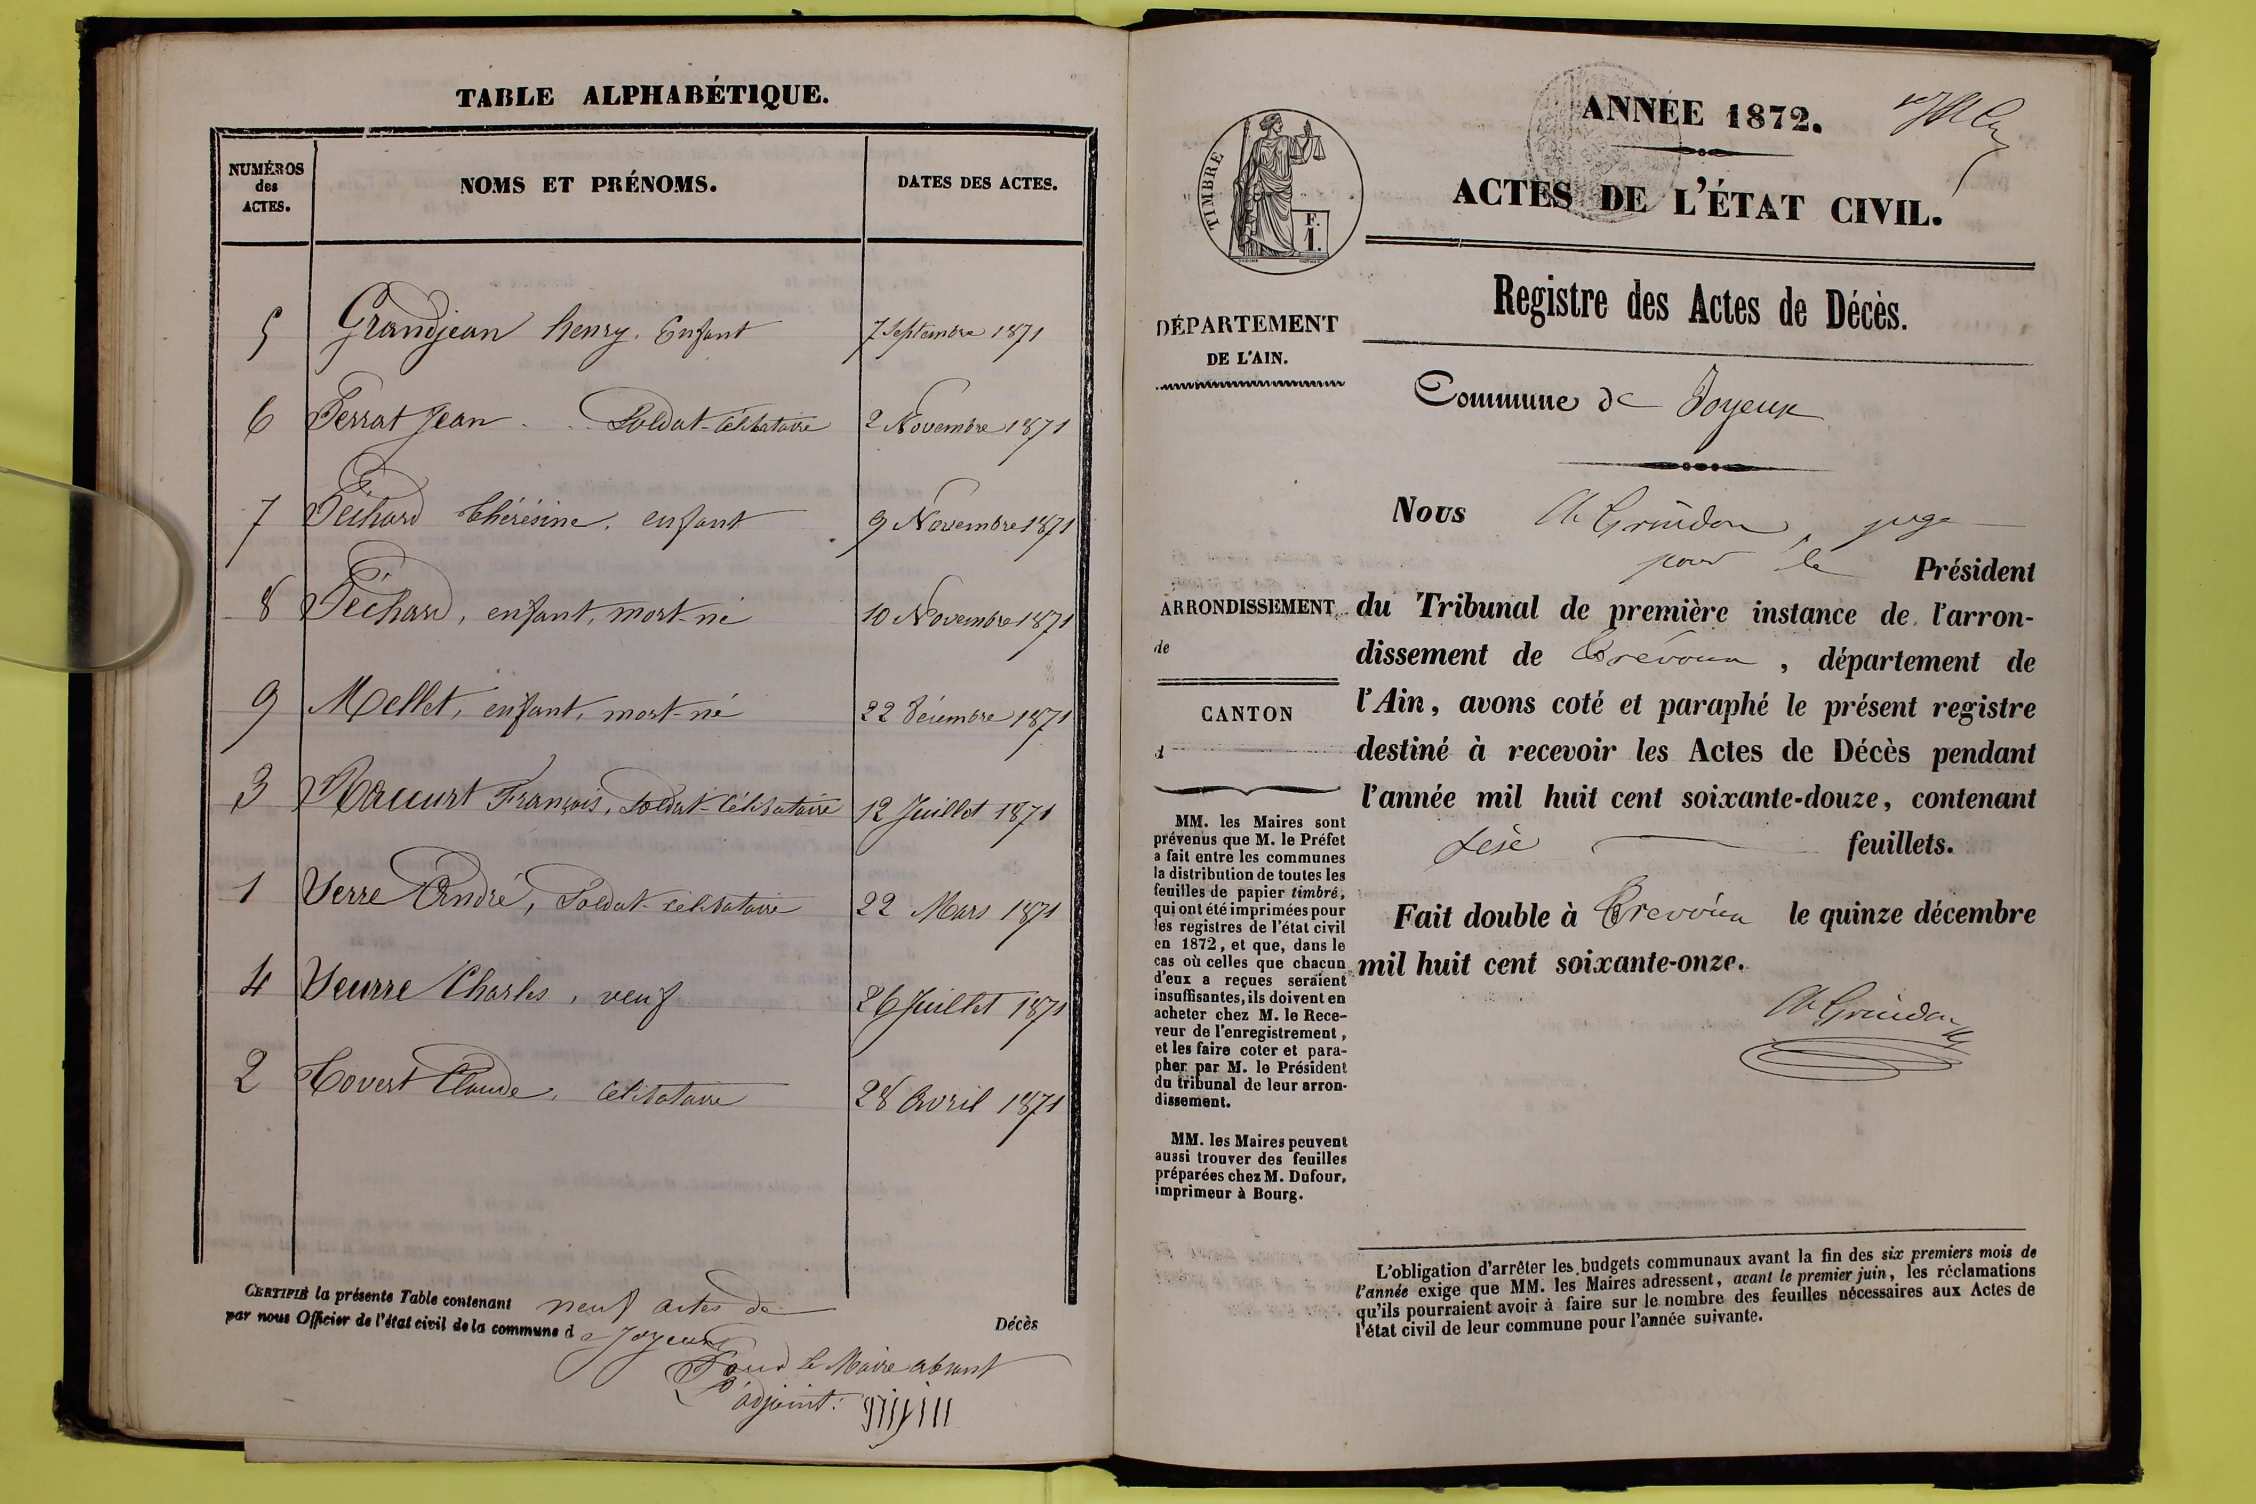 TABLE ALPHABÉTIQUE.
NUMÉROS des ACTES.
NOMS ET PRÉNOMS.
DATES DES ACTES.
5 Grandjean henry. Enfant 7 Septembre 1871
6 Ferrat Jean Soldat-Célibataire 2 Novembre 1871
7 Péchard Thérésine, enfant 9 Novembre 1871
8 Péchard, enfant, mort-né 10 Novembre 1871
9 Mellet, enfant, mort-né 22 Décembre 1871
3 Raccurt François, Soldat-Célibataire 12 Juillet 1871
1 Verre André, Soldat-célibataire 22 Mars 1871
4 Veurre Charles, veuf 26 Juillet 1871
2 Covert Claude, célibataire 28 Avril 1871
CERTIFIÉ la présente Table contenant neuf actes de Décès
par nous Officier de l'état civil de la commune de Joyeux
Pour le Maire absent
L'adjoint:
ANNÉE 1872.
ACTES DE L'ÉTAT CIVIL.
TIMBRE
F.
1.
Registre des Actes de Décès.
DÉPARTEMENT
DE L'AIN.
Commune de Joyeux
Nous Ch Grindon, juge
pour le Président
du Tribunal de première instance de l'arron-
dissement de Trévoux, département de
l'Ain, avons coté et paraphé le présent registre
destiné à recevoir les Actes de Décès pendant
l'année mil huit cent soixante-douze, contenant
feuillets.
Fait double à Trévoux le quinze décembre
mil huit cent soixante-onze.
Ch Grindon
ARRONDISSEMENT
de
CANTON
d
MM. les Maires sont
prévenus que M. le Préfet
a fait entre les communes
la distribution de toutes les
feuilles de papier timbré,
qui ont été imprimées pour
les registres de l'état civil
en 1872, et que, dans le
cas où celles que chacun
d'eux a reçues seraient
insuffisantes, ils doivent en
acheter chez M. le Rece-
veur de l'enregistrement,
et les faire coter et para-
pher par M. le Président
du tribunal de leur arron-
dissement.
MM. les Maires peuvent
aussi trouver des feuilles
préparées chez M. Dufour,
imprimeur à Bourg.
L'obligation d'arrêter les budgets communaux avant la fin des six premiers mois de
l'année exige que MM. les Maires adressent, avant le premier juin, les réclamations
qu'ils pourraient avoir à faire sur le nombre des feuilles nécessaires aux Actes de
l'état civil de leur commune pour l'année suivante.